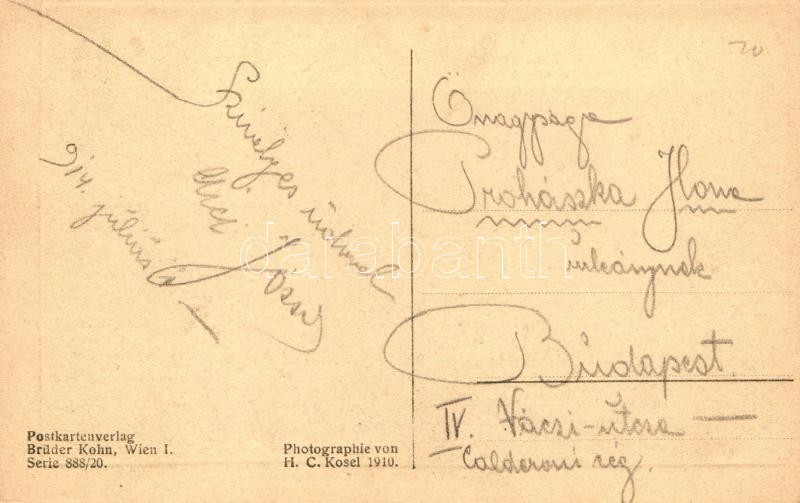 Szivélyes üdvözlet
Józsi
914. július
Őnagysága
Prohászka Ilona
urleánynak
Budapest
IV. Váczi-útcza
Calderoni cég.
20
Postkartenverlag
Brüder Kohn, Wien I.
Serie 888/20.
Photographie von
H. C. Kosel 1910.
darabanth